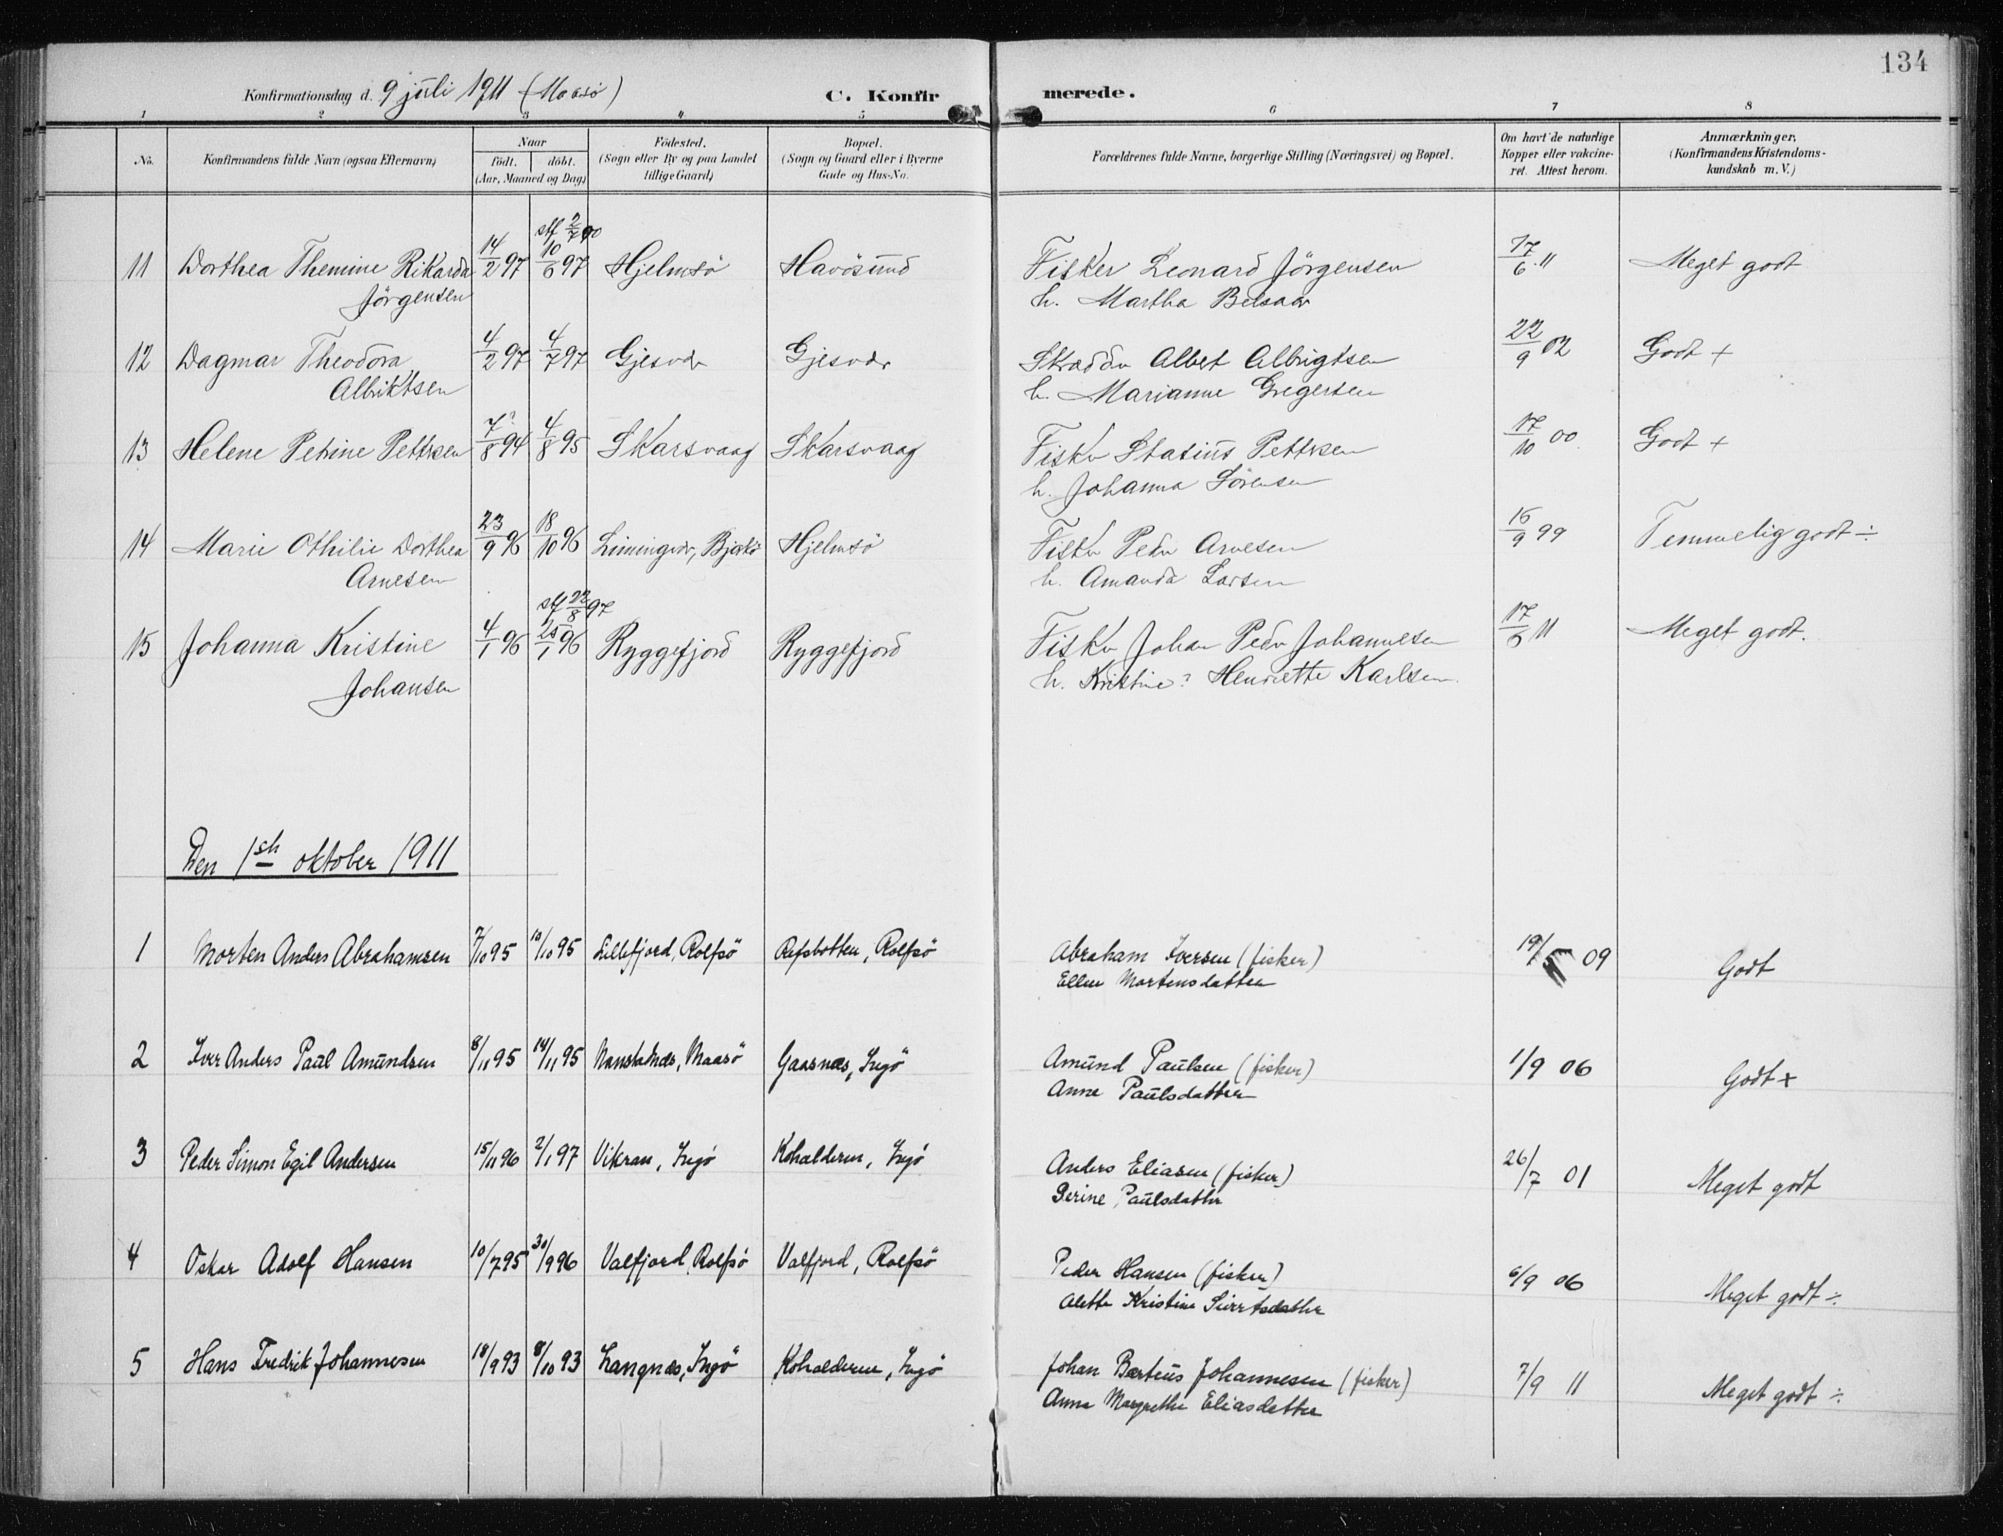 134
Konfirmationsdag d. 9 juli 1911 (Maasø)
C. Konfirmerede.
1 2 3 4 5 6 7 8
No. Konfirmandens fulde Navn (ogsaa Efternavn) Naar født. døbt. (Aar, Maaned og Dag) Fødested. (Sogn eller By og paa Landet tillige Gaard) Bopæl. (Sogn og Gaard eller i Byerne Gade og Hus-No. Forældrenes fulde Navne, borgerlige Stilling (Næringsvei) og Bopæl. Om havt de naturlige Kopper eller vakcineret. Attest herom. Anmærkninger. (Konfirmandens Kristendomskundskab m. V.)
stf 2/7 00
11 Dorthea Themine Rikarda 14/2 97 10/6 97 Hjelmsö Havösund Fisker Leonard Jörgensen 17/6 11 Meget godt
Jörgensen h. Martha
12 Dagmar Theodora 4/2 97 4/7 97 Gjesvær Gjesvær Skrædder Albert Albrigtsen 22/9 02 Godt +
Albriktsen h. Marianne Gregersen
13 Helene Petrine Pettersen 7?/8 94 4/8 95 Skarsvaag Skarsvaag Fisker Stasius Pettersen 17/10 00 Godt +
h. Johanna Sörensen
14 Marie Othilie Dorthea 23/9 96 18/10 96 Hjelmsö Fisker Peder Arnesen 16/9 99 Temmelig godt ÷
Arnesen h. Amanda Larsen
stf 22/8 97
15 Johanna Kristine 4/1 96 25/1 96 Ryggefjord Ryggefjord Fisker Johan Peder Johannesen 17/6 11 Meget godt.
Johansen h. Kristine? Henriette Karlsen.
Den 1ste oktober 1911
1 Morten Anders Abrahamsen 7/10 95 10/10 95 Lillefjord, Rolfsö Refsbotten, Rolfsö Abraham Iversen (fisker) 19/5 09 Godt
Ellen Mortensdatter
2 Iver Anders Paul Amundsen 8/11 95 14/11 95 Maasö Gaasnæs, Ingö Amund Paulsen (fisker) 1/9 06 Godt +
Anne Paulsdatter
3 Peder Simon Egil Andersen 15/11 96 2/1 97 Vikran, Ingö Kohalderen, Ingö Anders Eliasen (fisker) 26/7 01 Meget godt
Serine Paulsdatter
4 Oskar Adolf Hansen 10/7 95 30/9 96 Valfjord, Rolfsö Valfjord, Rolfsö Peder Hansen (fisker) 6/9 06 Meget godt ÷
Alette Kristine Siversdatter
5 Hans Fredrik Johannesen 18/9 93 8/10 93 Langnæs, Ingö Kohalderen, Ingö Johan Bertius Johannesen (fisker) 7/9 11 Meget godt ÷
Anna Margrethe Eliasdatter